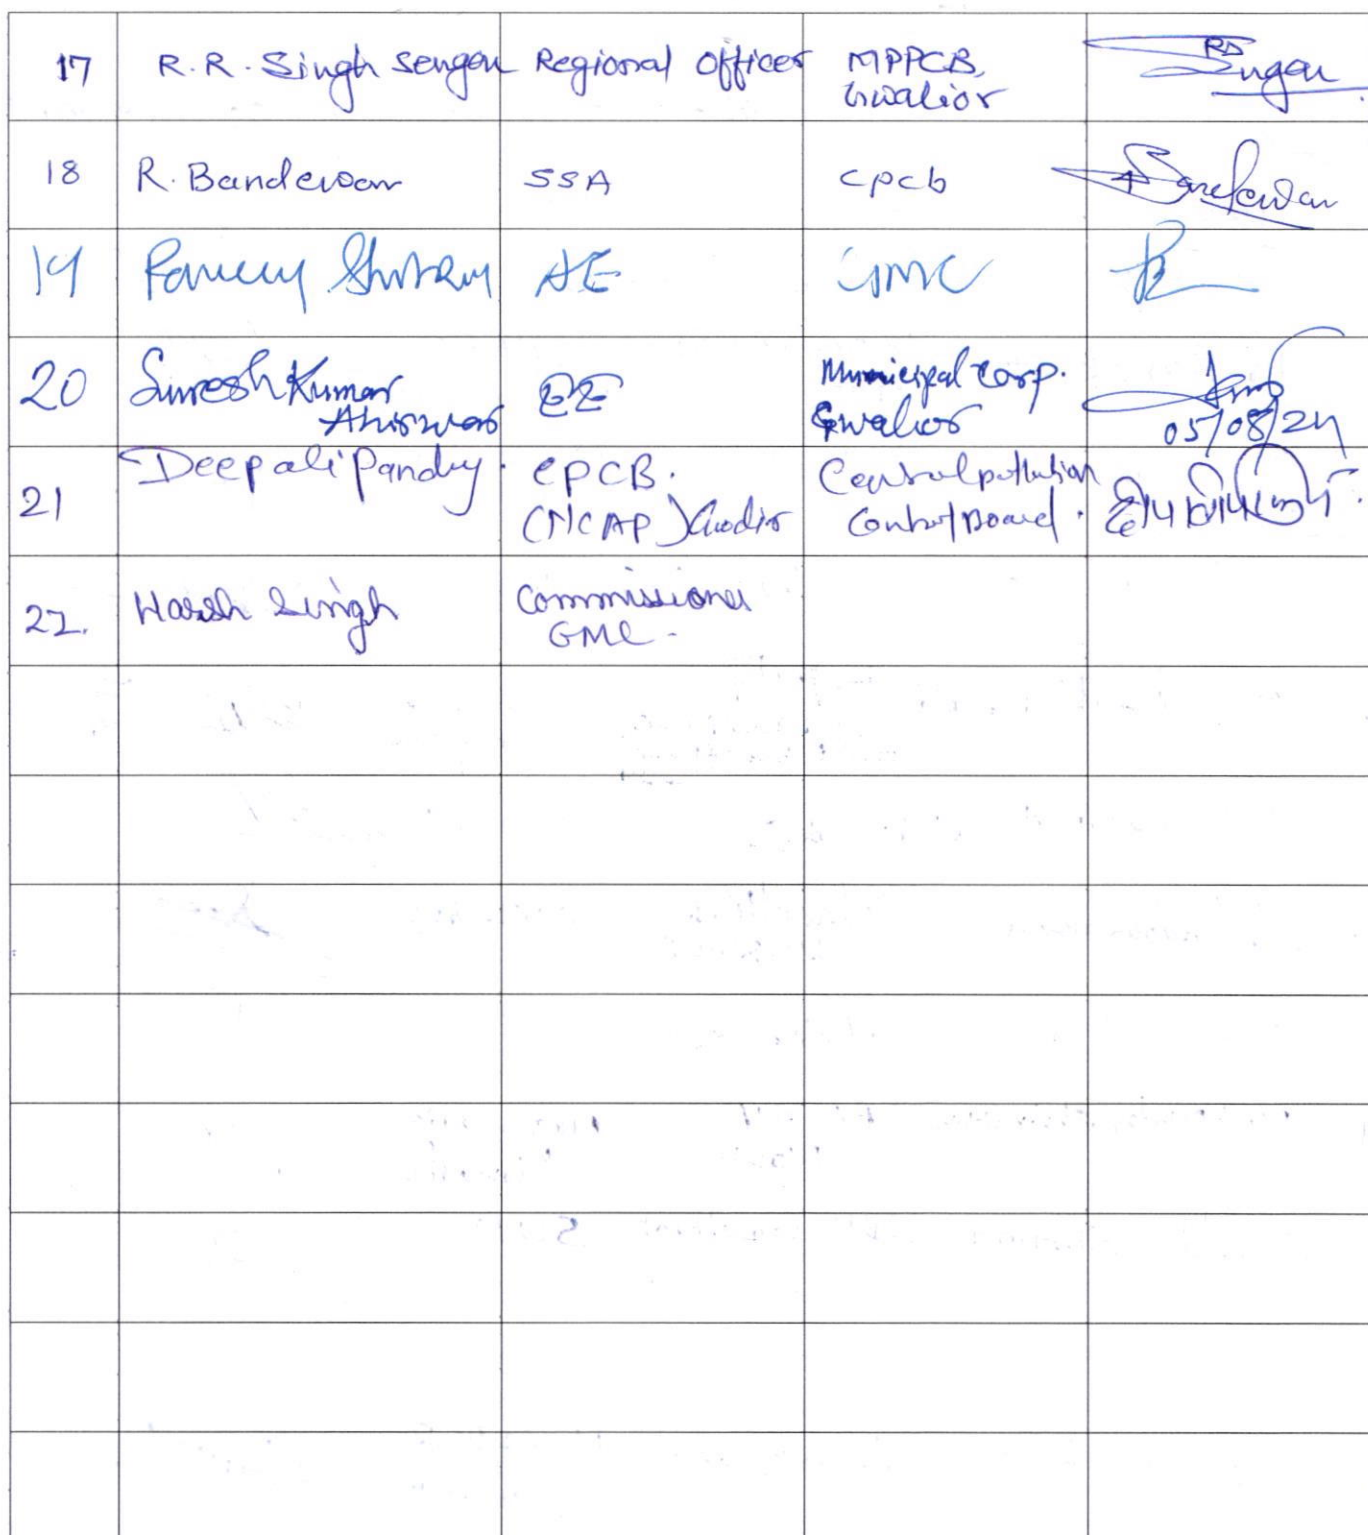 17 R.R. Singh Sengar Regional Officer MPPCB, Gwalior
18 R. Bandewar SSA cpcb Bandewar
19 AE GMC
20 Suresh Kumar Ahirwar EE Municipal Corp. Gwalior 05/08/24
21 Deepali Pandey. CPCB. (NCAP) Central pollution Control Board.
22. Harsh Singh Commissioner GMC -